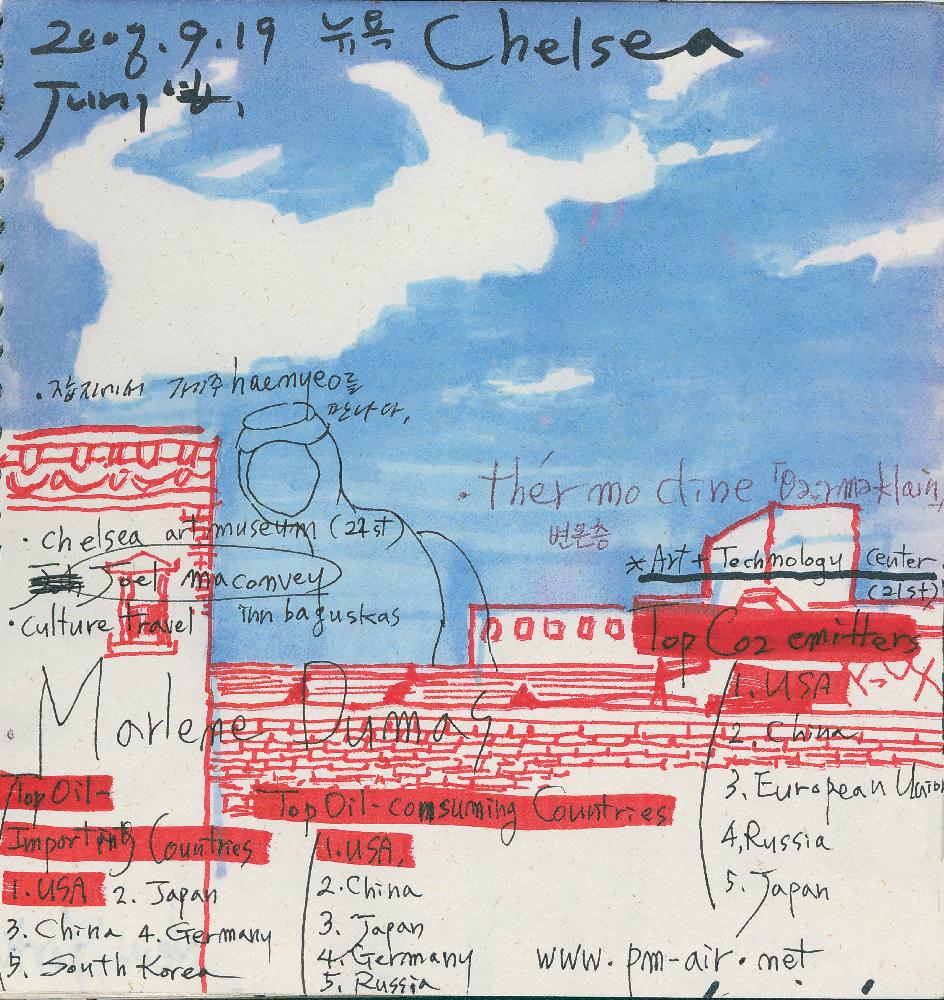 2008.9.19 뉴욕 Chelsea
Jung
· 잡지에서 haemyeo를
만나다.
· thérmocline
변온층
· chelsea art museum (22st)
Joel maconvey
· culture travel
inn baguskas
* Art + Technology center
(21st)
Marlene Dumas
Top Co2 emitters
1. USA
2. China
3. European Union
4. Russia
5. Japan
Top Oil-
Importing Countries
1. USA 2. Japan
3. China 4. Germany
5. South Korea
Top Oil-consuming Countries
1. USA.
2. China
3. Japan
4. Germany
5. Russia
www.pm-air.net